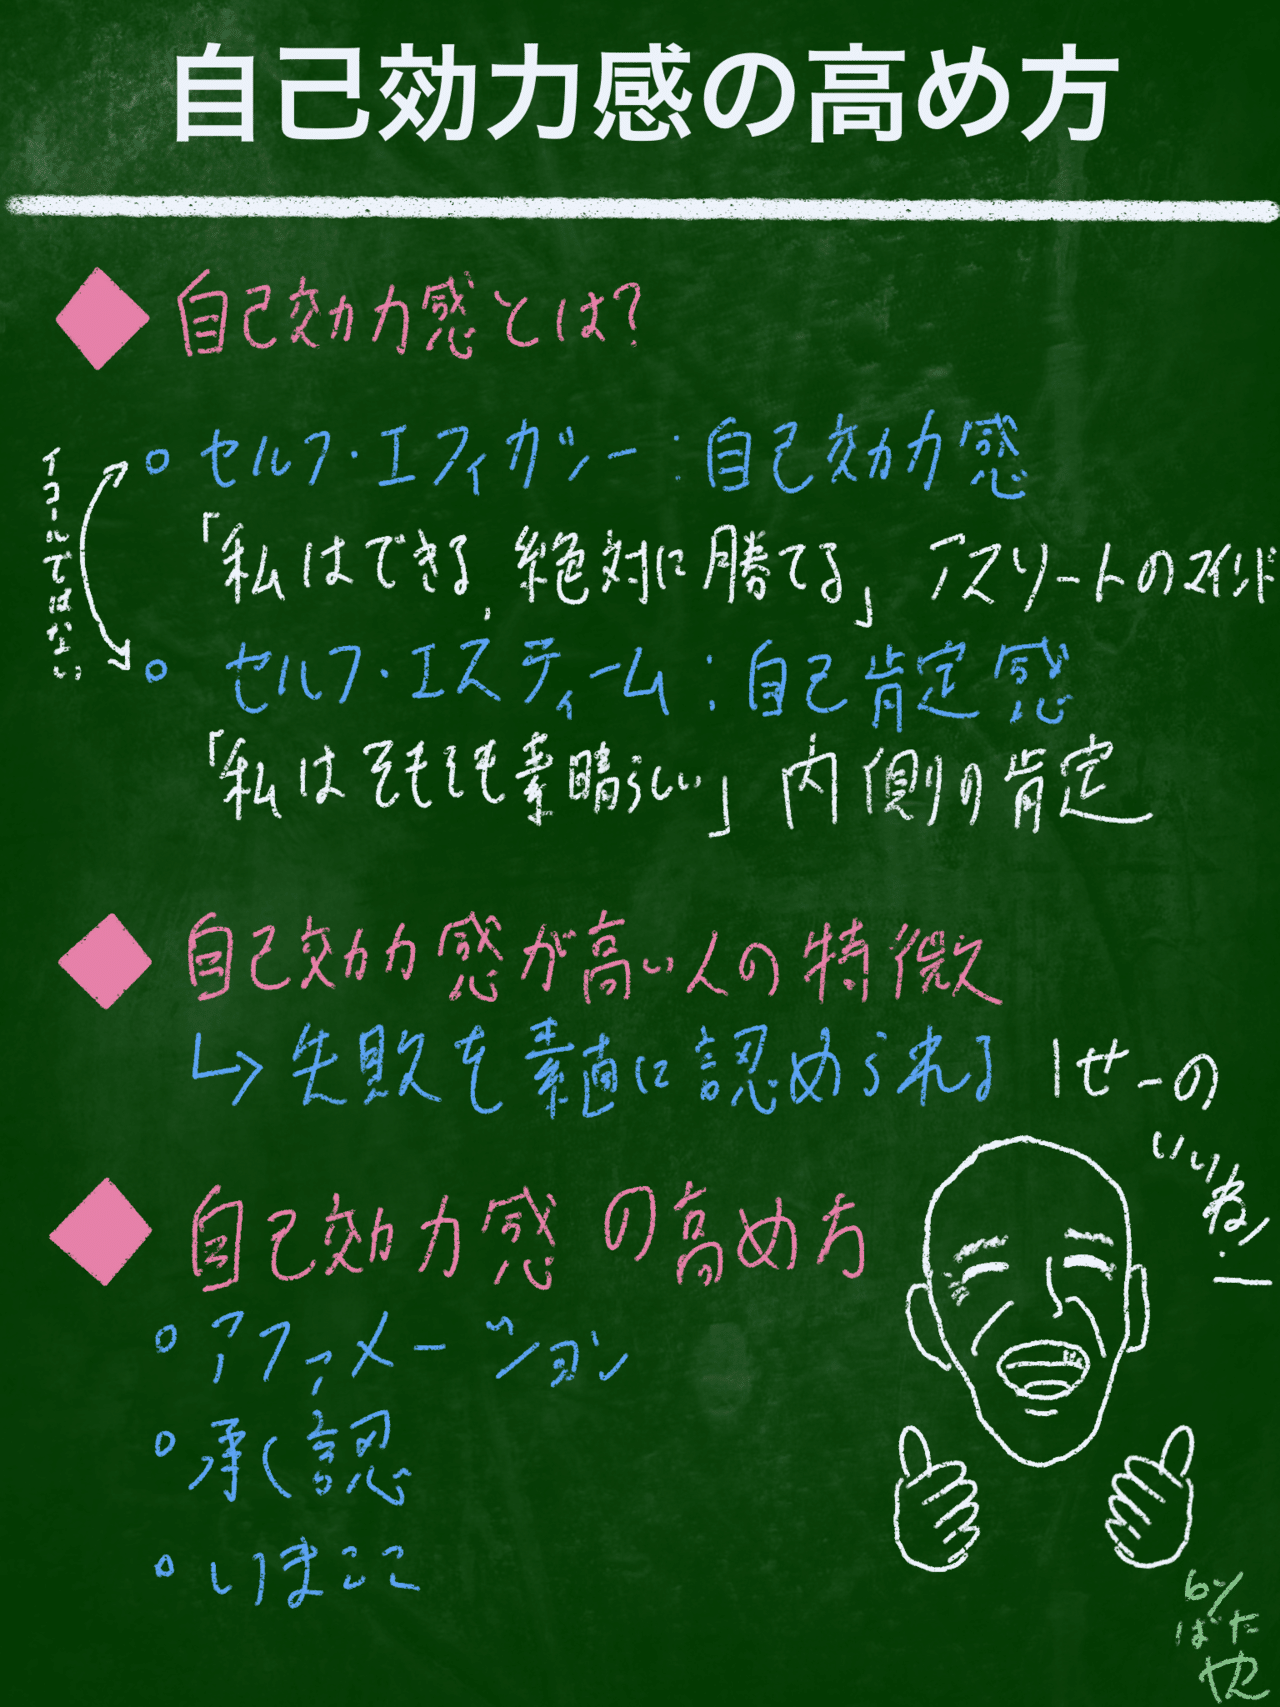 自己効力感の高め方
自己効力感とは?
セルフ・エフィカシー:自己効力感
「私はできる、絶対に勝てる」 アスリートのマインド
イコールではない
セルフ・エスティーム:自己肯定感
「私はそもそも素晴らしい」 内側の肯定
自己効力感が高い人の特徴
↳ 失敗を素直に認められる
せーの
いいね!
自己効力感の高め方
アファメーション
承認
いまここ
by
ばた
やん